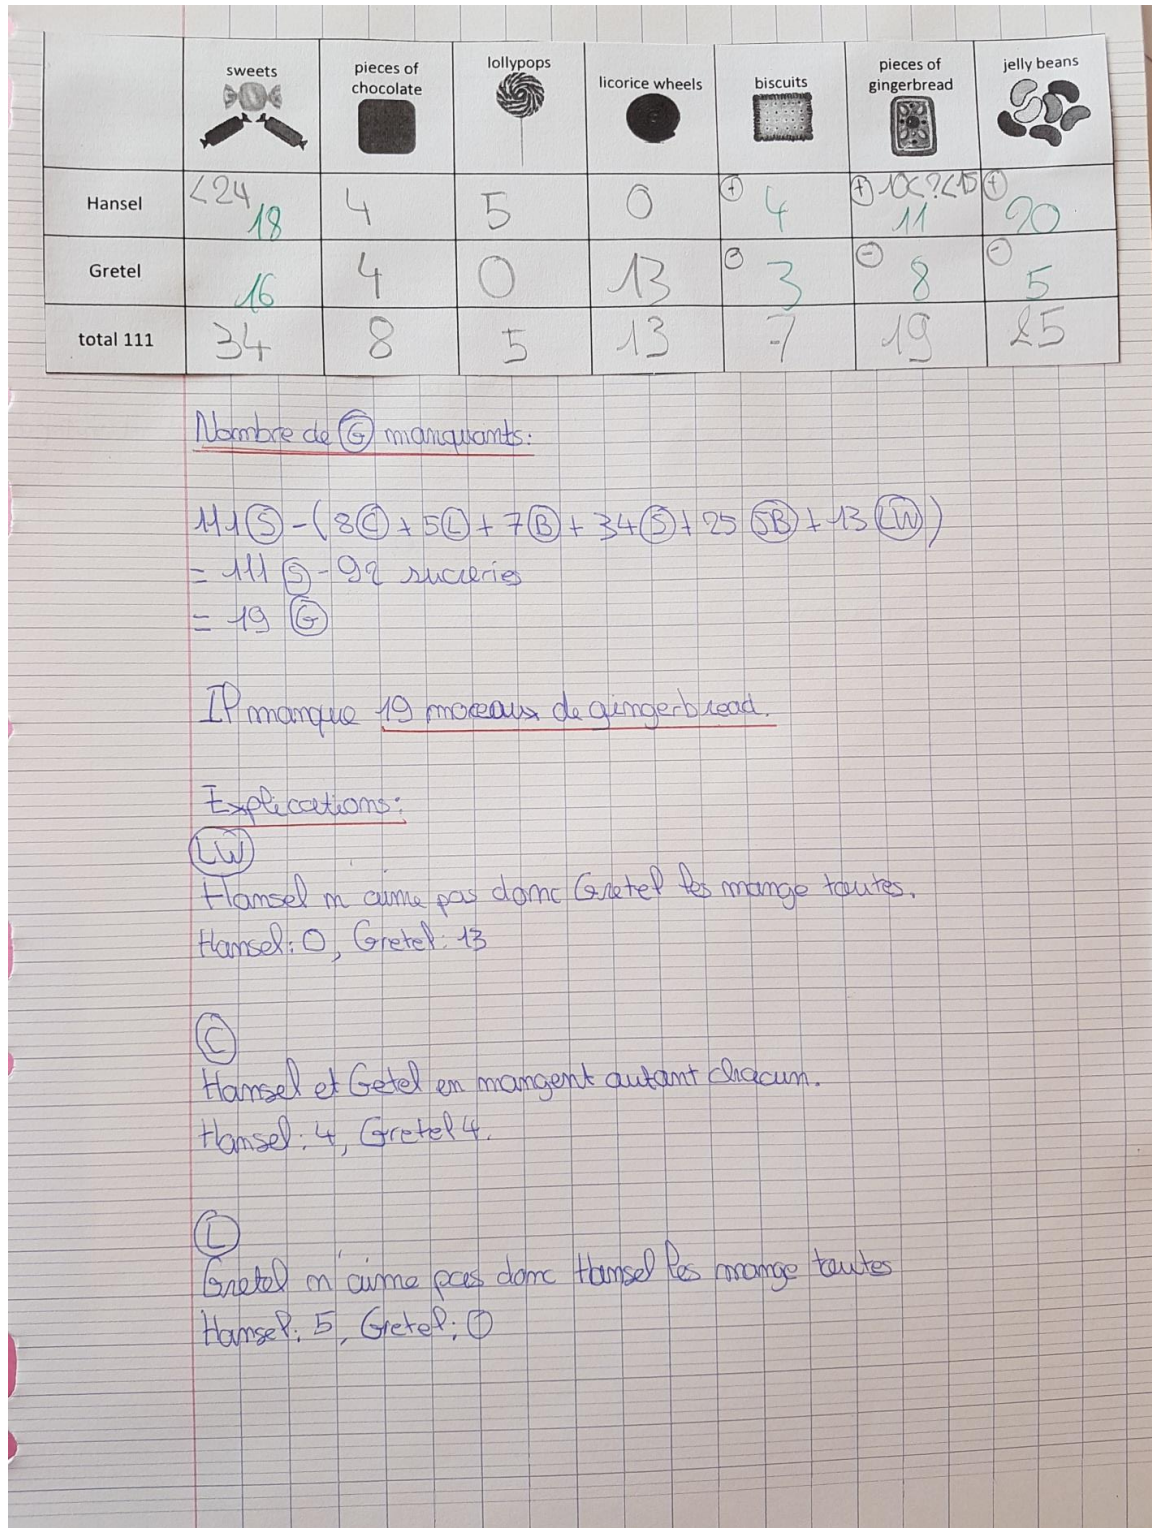 sweets pieces of chocolate lollypops licorice wheels biscuits pieces of gingerbread jelly beans
Hansel <24 18 4 5 0 + 4 + 10<?<15 11 + 20
Gretel 16 4 0 13 - 3 - 8 - 5
total 111 34 8 5 13 7 19 25
Nombre de G manquants:
111 S - (8 C + 5 L + 7 B + 34 S + 25 JB + 13 LW)
= 111 S - 92 sucreries
= 19 G
Il manque 19 moceaux de gingerbread.
Explications:
LW
Hansel n'aime pas donc Gretel les mange toutes.
Hansel: 0, Gretel: 13
C
Hansel et Getel en mangent autant chacun.
Hansel: 4, Gretel 4.
L
Gretel n'aime pas donc Hansel les mange toutes
Hansel: 5, Gretel: 0